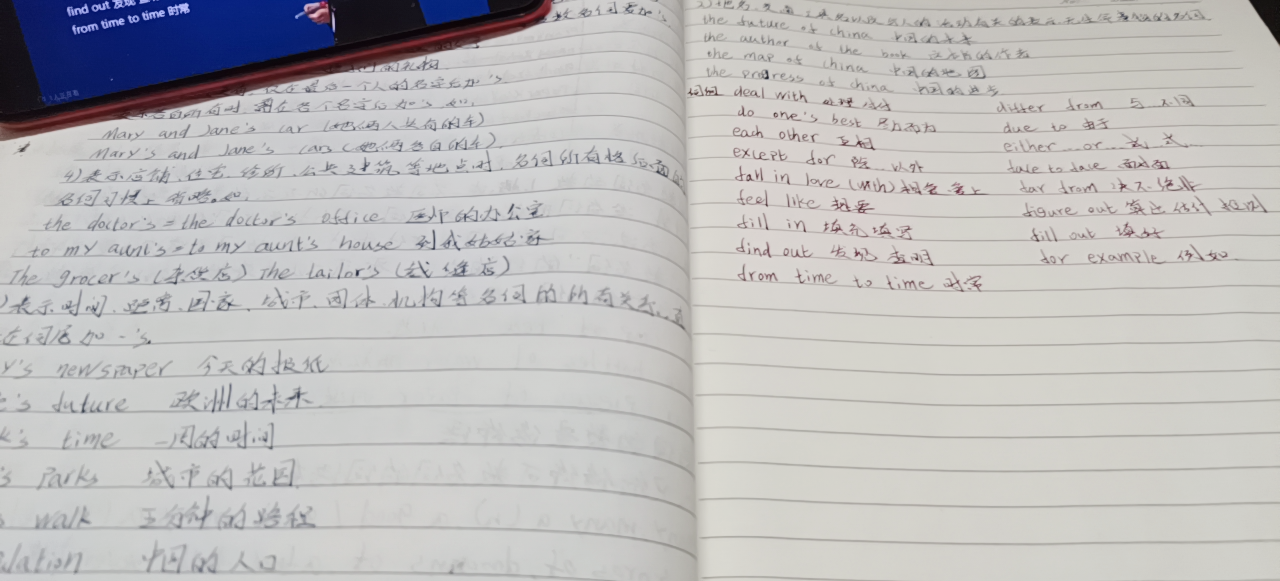 find out 发现
from time to time 时常
Mary and Jane's car (她俩人共有的车)
Mary's and Jane's cars (她俩各自的车)
4)表示店铺、住宅、诊所、公共建筑等地点时,名词所有格后面的
名词习惯上省略。如:
the doctor's = the doctor's office 医生的办公室
to my aunt's = to my aunt's house 到我姑姑家
The grocer's (杂货店) The tailor's (裁缝店)
)表示时间、距离、国家、城市、团体、机构等名词的所有关系,
在词尾加-'s.
y's newspaper 今天的报纸
e's future 欧洲的未来
k's time 一周的时间
's Parks 城市的花园
walk 五分钟的路程
ulation 中国的人口
the future of china 中国的未来
the author of the book
the map of china 中国的地图
the progress of china 中国的进步
deal with 处理 differ from 与 不同
do one's best 尽力而为 due to 由于
each other 互相 either...or
except for 除 以外 face to face 面对面
fall in love (with) 相爱 爱上 far from 决不
feel like 想要 figure out 算出 估计
fill in 填充填写 fill out 填好
find out 发现 查明 for example 例如
from time to time 时常